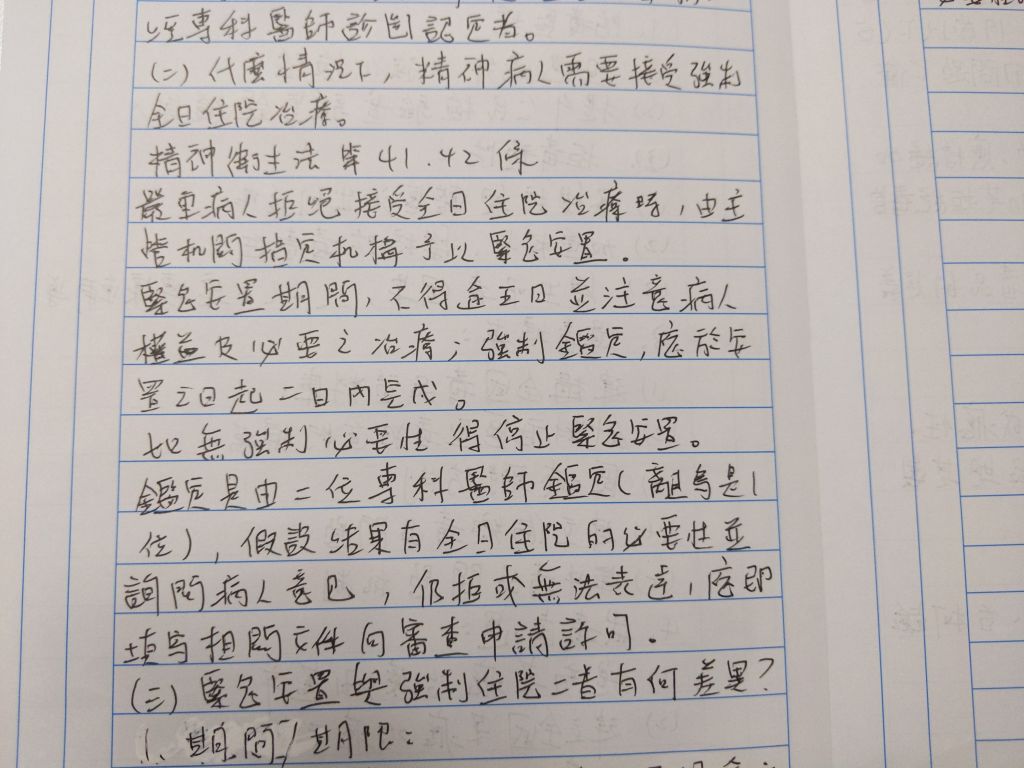 經專科醫師診斷認定者。
(二) 什麼情況下，精神病人需要接受強制
全日住院治療。
精神衛生法第41.42條
嚴重病人拒絕接受全日住院治療時，由主
管机関指定机構予以緊急安置。
緊急安置期間，不得逾五日並注意病人
權益及必要之治療；強制鑑定，應於安
置之日起二日內完成。
如無強制必要性得停止緊急安置。
鑑定是由二位專科醫師鑑定(離島是1
位)，假設結果有全日住院的必要性並
詢問病人意見，仍拒或無法表達，應即
填写相関文件向審查申請許可。
(三) 緊急安置與強制住院二者有何差異？
1. 期間/期限：